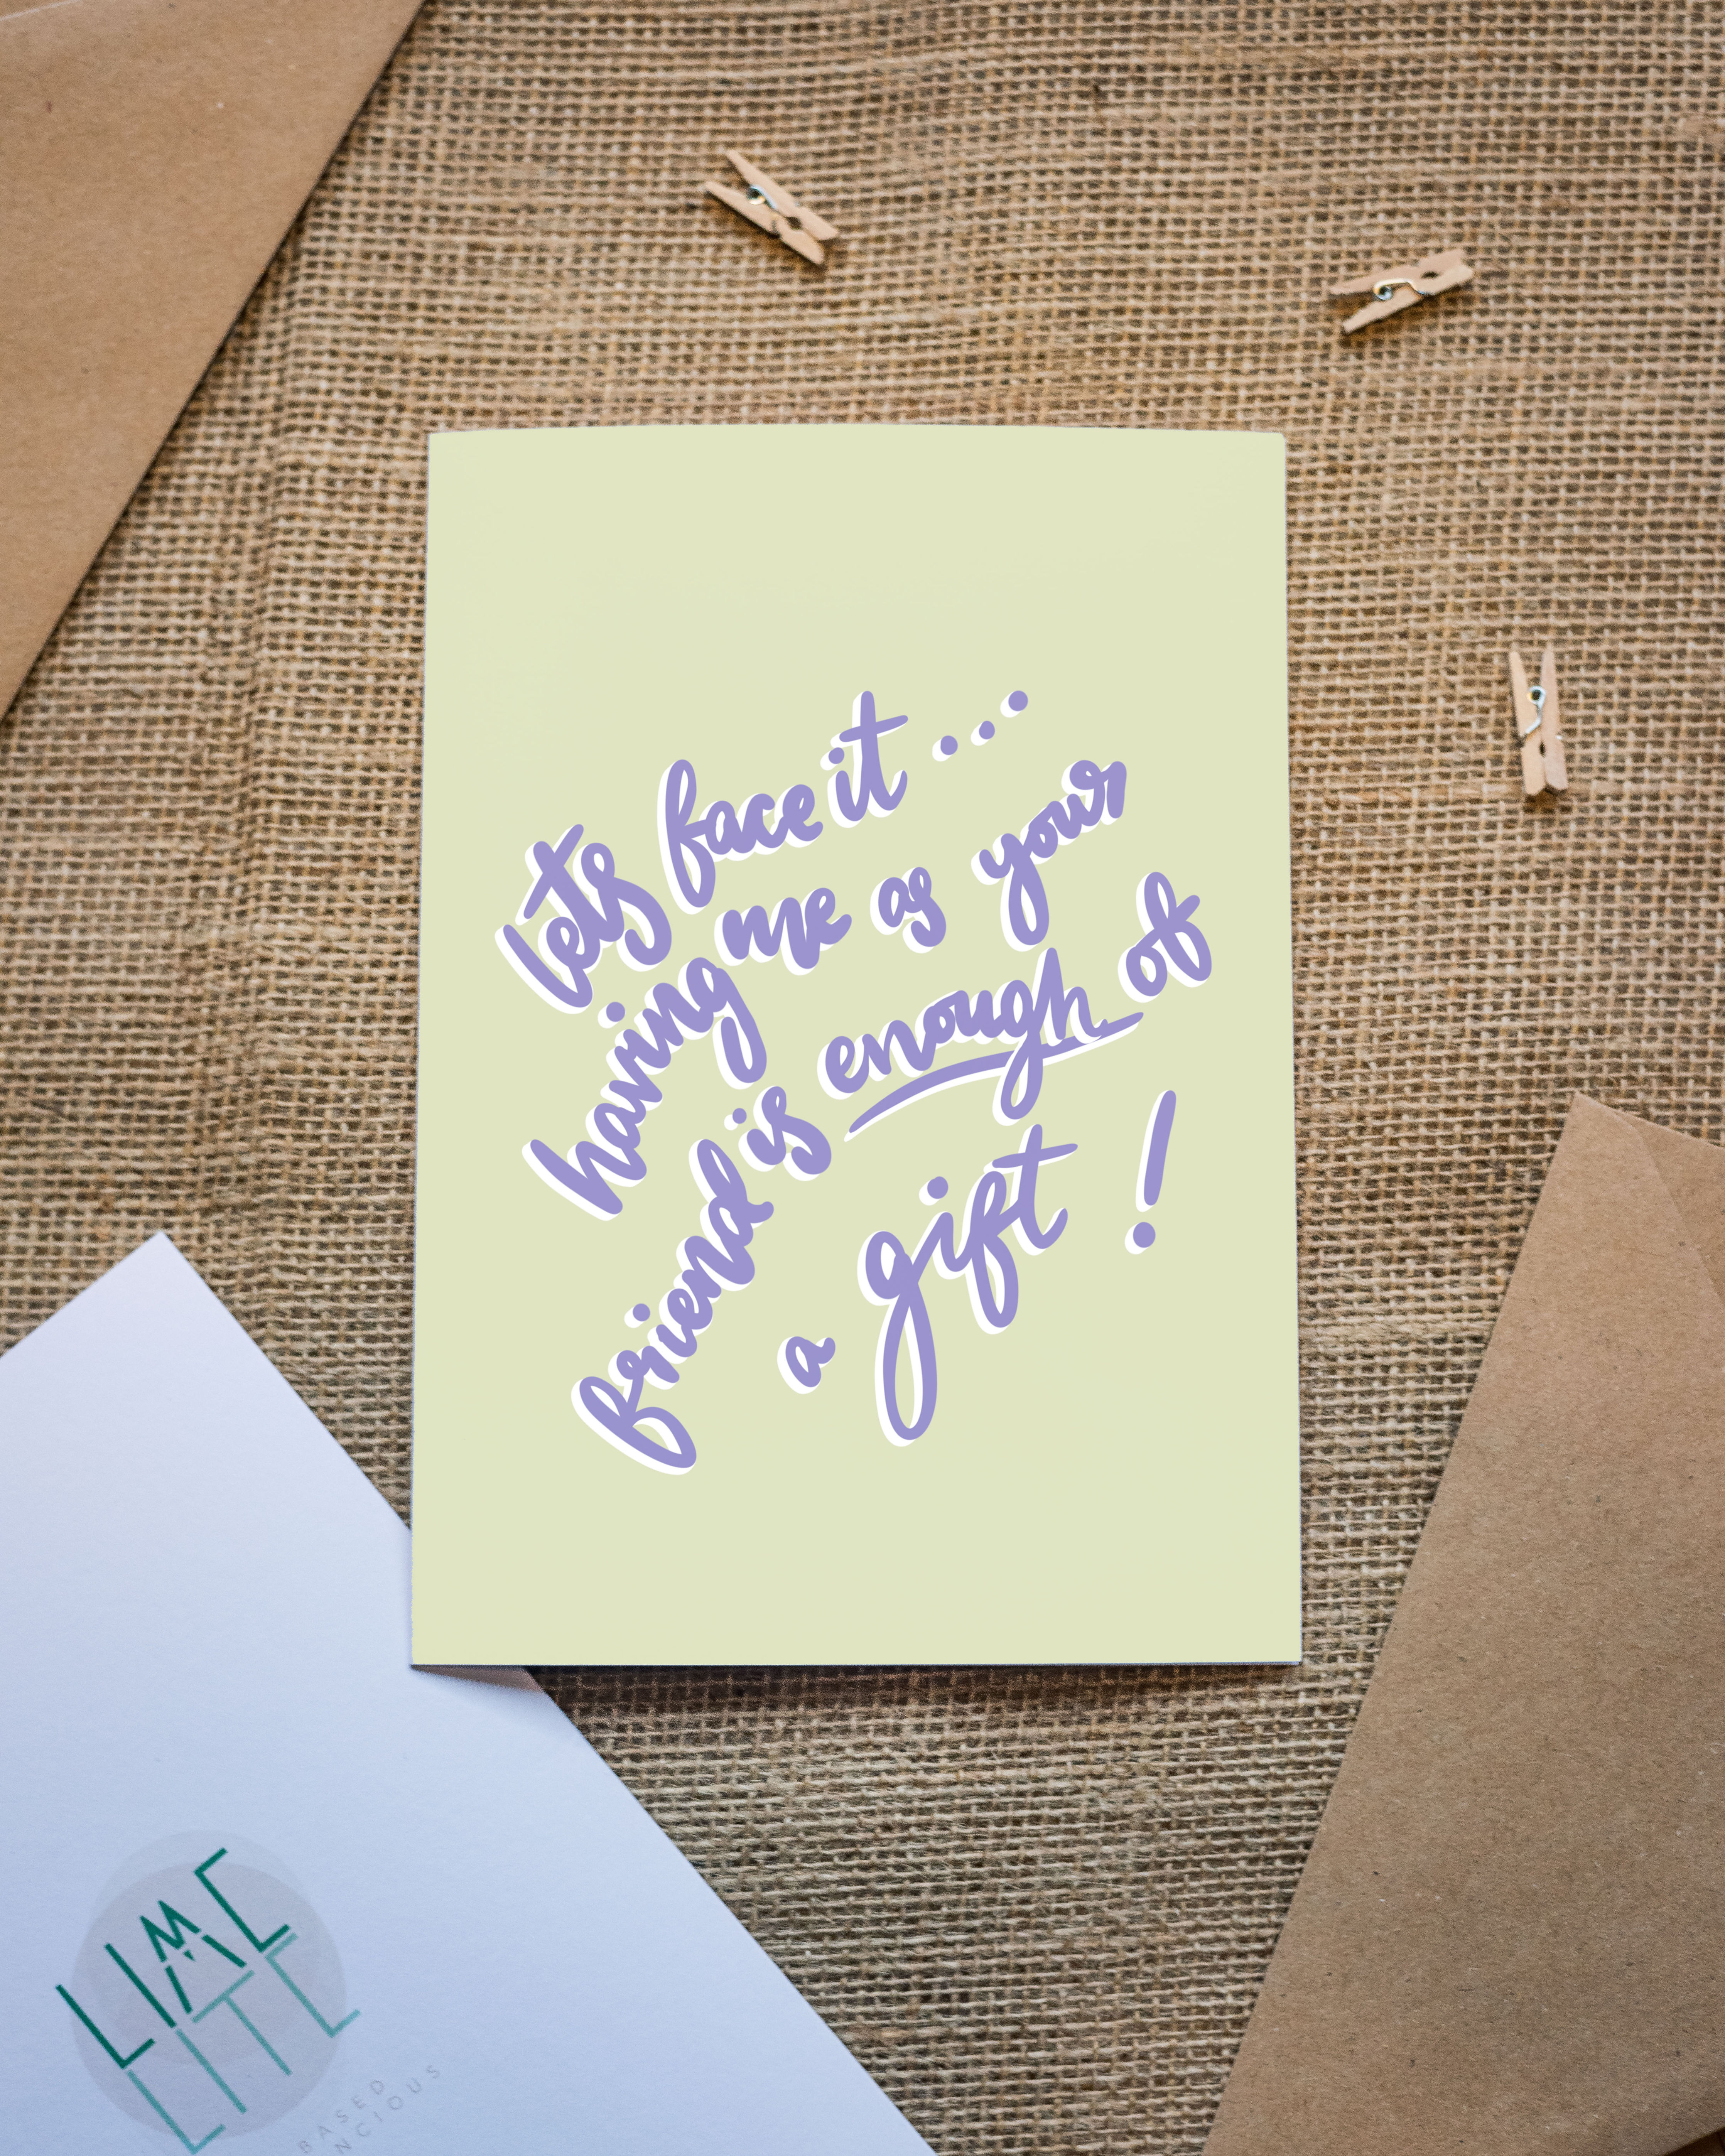 lets face it...
having me as your
friend is enough of
a gift!
LIME
LITE
BASED